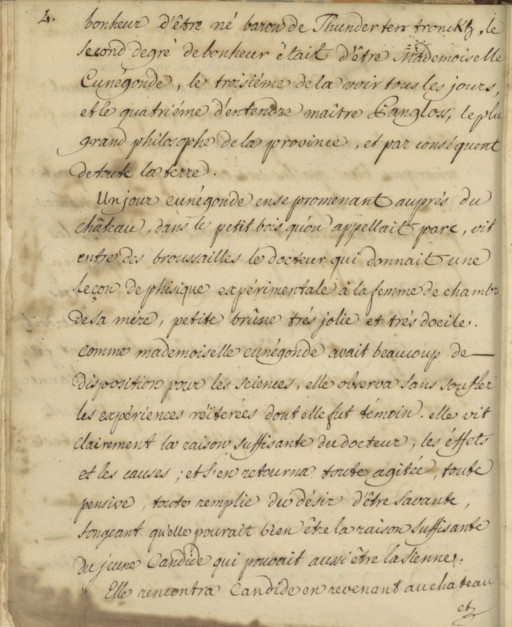 4.
bonheur d'être né baron de Thunder ten tronckh, le
second degré de bonheur était d'être Mademoiselle
Cunégonde, le troisiéme de la voir tous les jours,
et le quatriéme d'entendre maître Pangloss, le plu
grand philosophe de la province, et par conséquent
de toute la terre.
Un jour cunégonde en se promenant auprés du
château, dans le petit bois qu'on appellait parc, vit
entre des broussailles le docteur qui donnait une
leçon de phisique expérimentale à la femme de chamb
de sa mére, petite brune trés jolie et trés docile.
comme mademoiselle cunégonde avait beaucoup de
disposition pour les sciences, elle observa sans soufler
les expériences réïterées dont elle fut témoin. elle vit
clairement la raison suffisante du docteur, les éffets
et les causes; et s'en retourna toute agitée, toute
pensive, toute remplie du désir d'être savante,
songeant qu'elle pourait bien être la raison suffisante
du jeune Candide qui pouvait aussi être la sienne.
Elle rencontra Candide en revenant au chateau
et